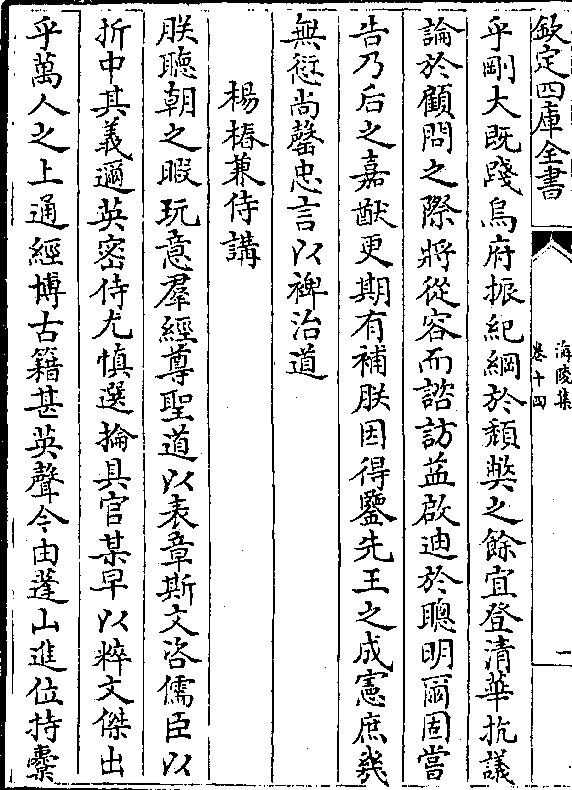 欽定四庫全書
海陵集
卷十四
一
乎剛大既踐烏府振紀綱於頹弊之餘宜登清華抗議
論於顧問之際將從容而諮訪葢啟迪於聰明爾固當
告乃后之嘉猷更期有補朕因得鑒先王之成憲庶幾
無愆尚罄忠言以裨治道
楊椿兼侍講
朕聽朝之暇玩意羣經尊聖道以表章斯文咨儒臣以
折中其義邇英密侍尤慎選掄具官某早以粹文傑出
乎萬人之上通經博古籍甚英聲今由蓬山進位持橐